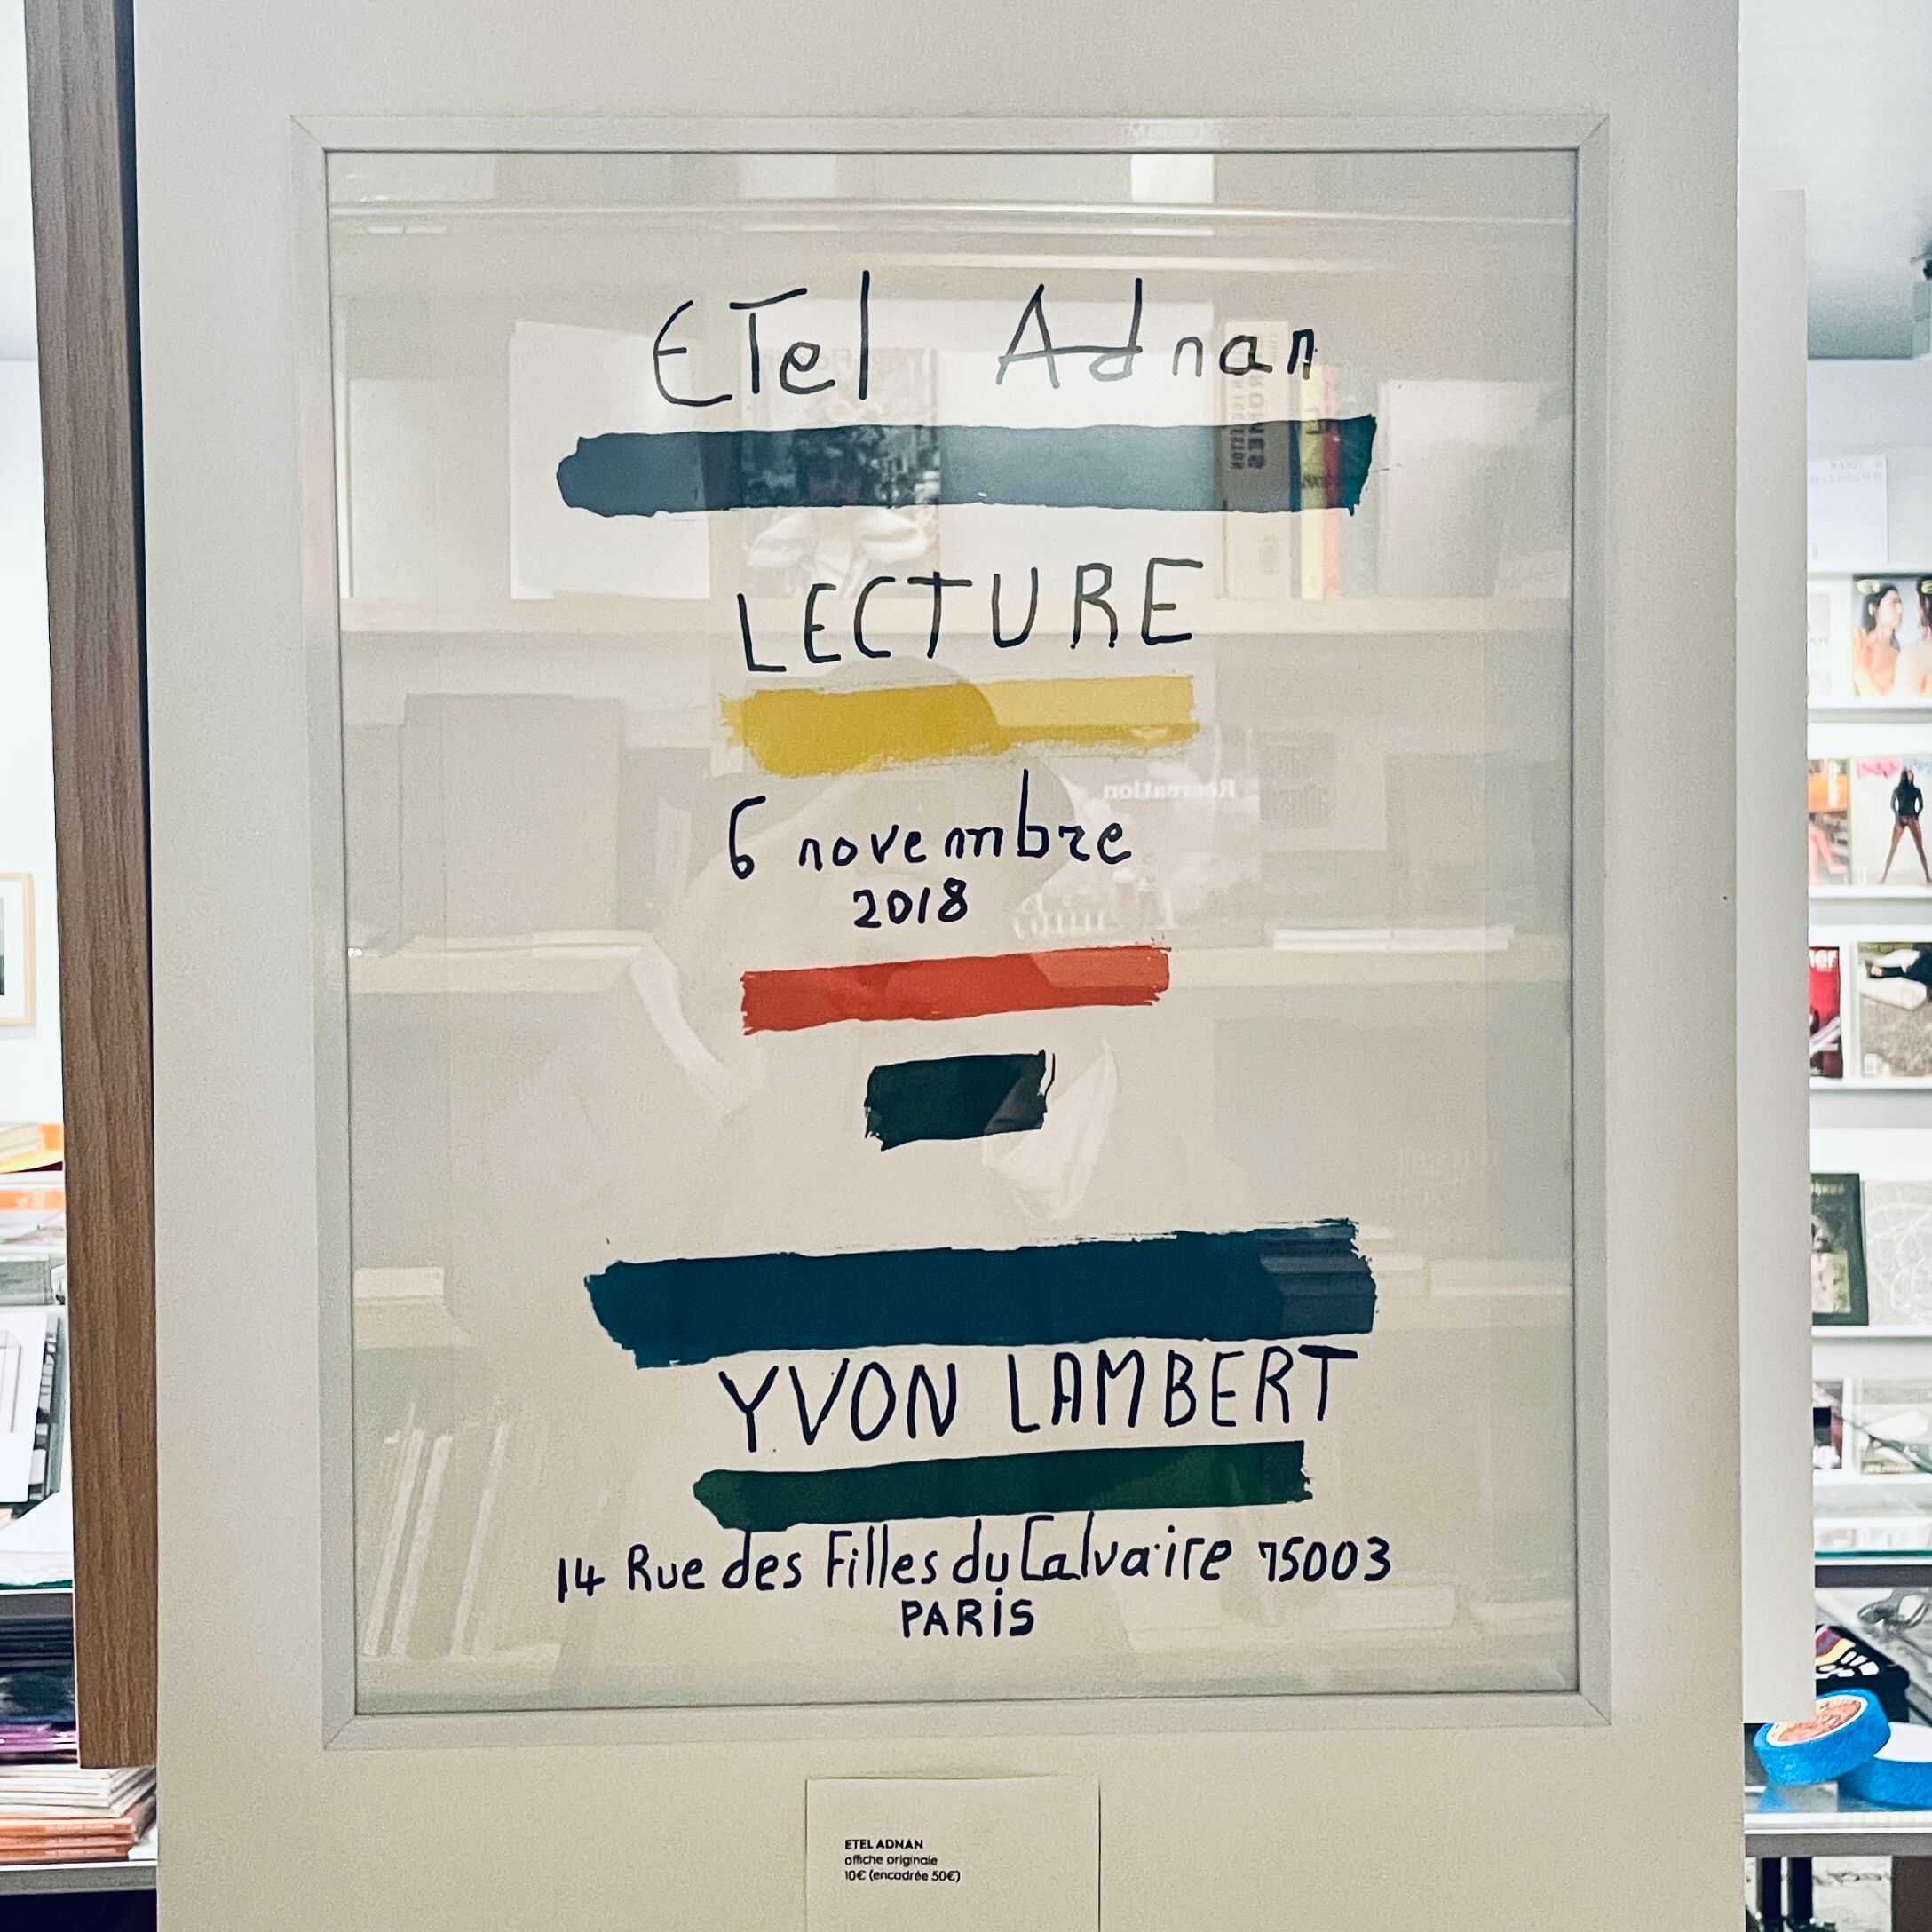 ETel Adnan
LECTURE
6 novembre
2018
YVON LAMBERT
14 Rue des Filles du Calvaire 75003
PARIS
ETEL ADNAN
affiche originale
10€ (encadrée 50€)